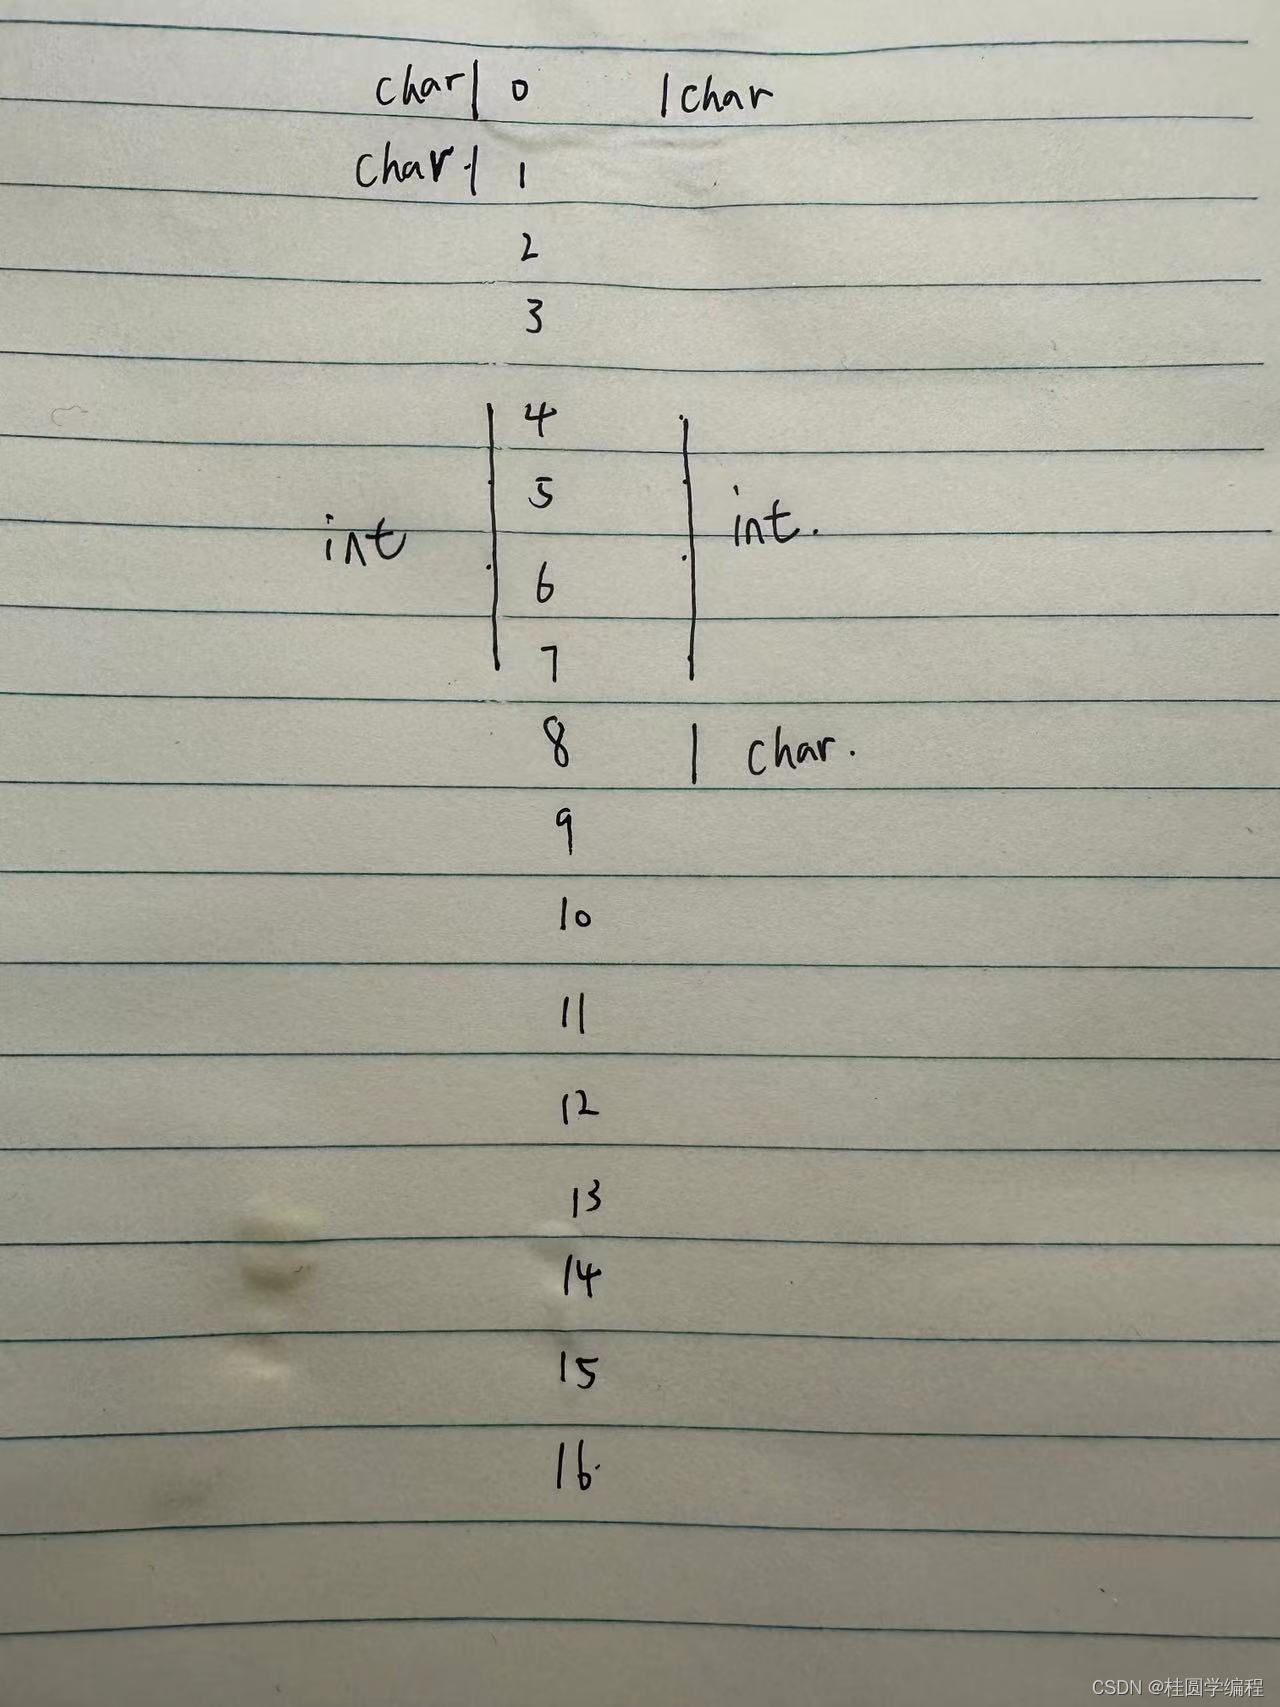 char| 0 |char
char| 1
2
3
4
5
int int.
6
7
8 | char.
9
10
11
12
13
14
15
16.
CSDN @桂圆学编程